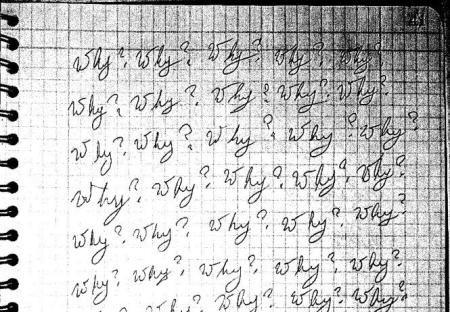 Why? Why? Why? Why? Why?
Why? Why? Why? Why? Why?
Why? Why? Why? Why? Why?
Why? Why? Why? Why? Why?
Why? Why? Why? Why? Why?
Why? Why? Why? Why? Why?
Why? Why? Why? Why?